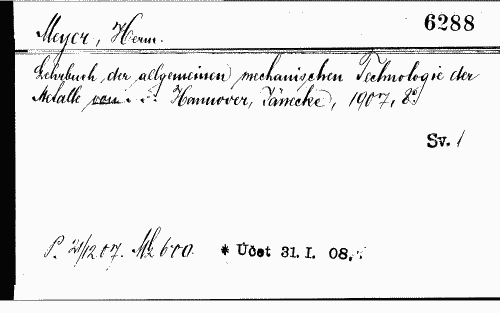 Meyer, Herm. 6288
Lehrbuch der allgemeinen mechanischen Technologie der
Metalle von ... Hannover, Jänecke, 1907, 8°
Sv. 1
P. 21/12 07. Mk 6·00. * Účet 31. I. 08.